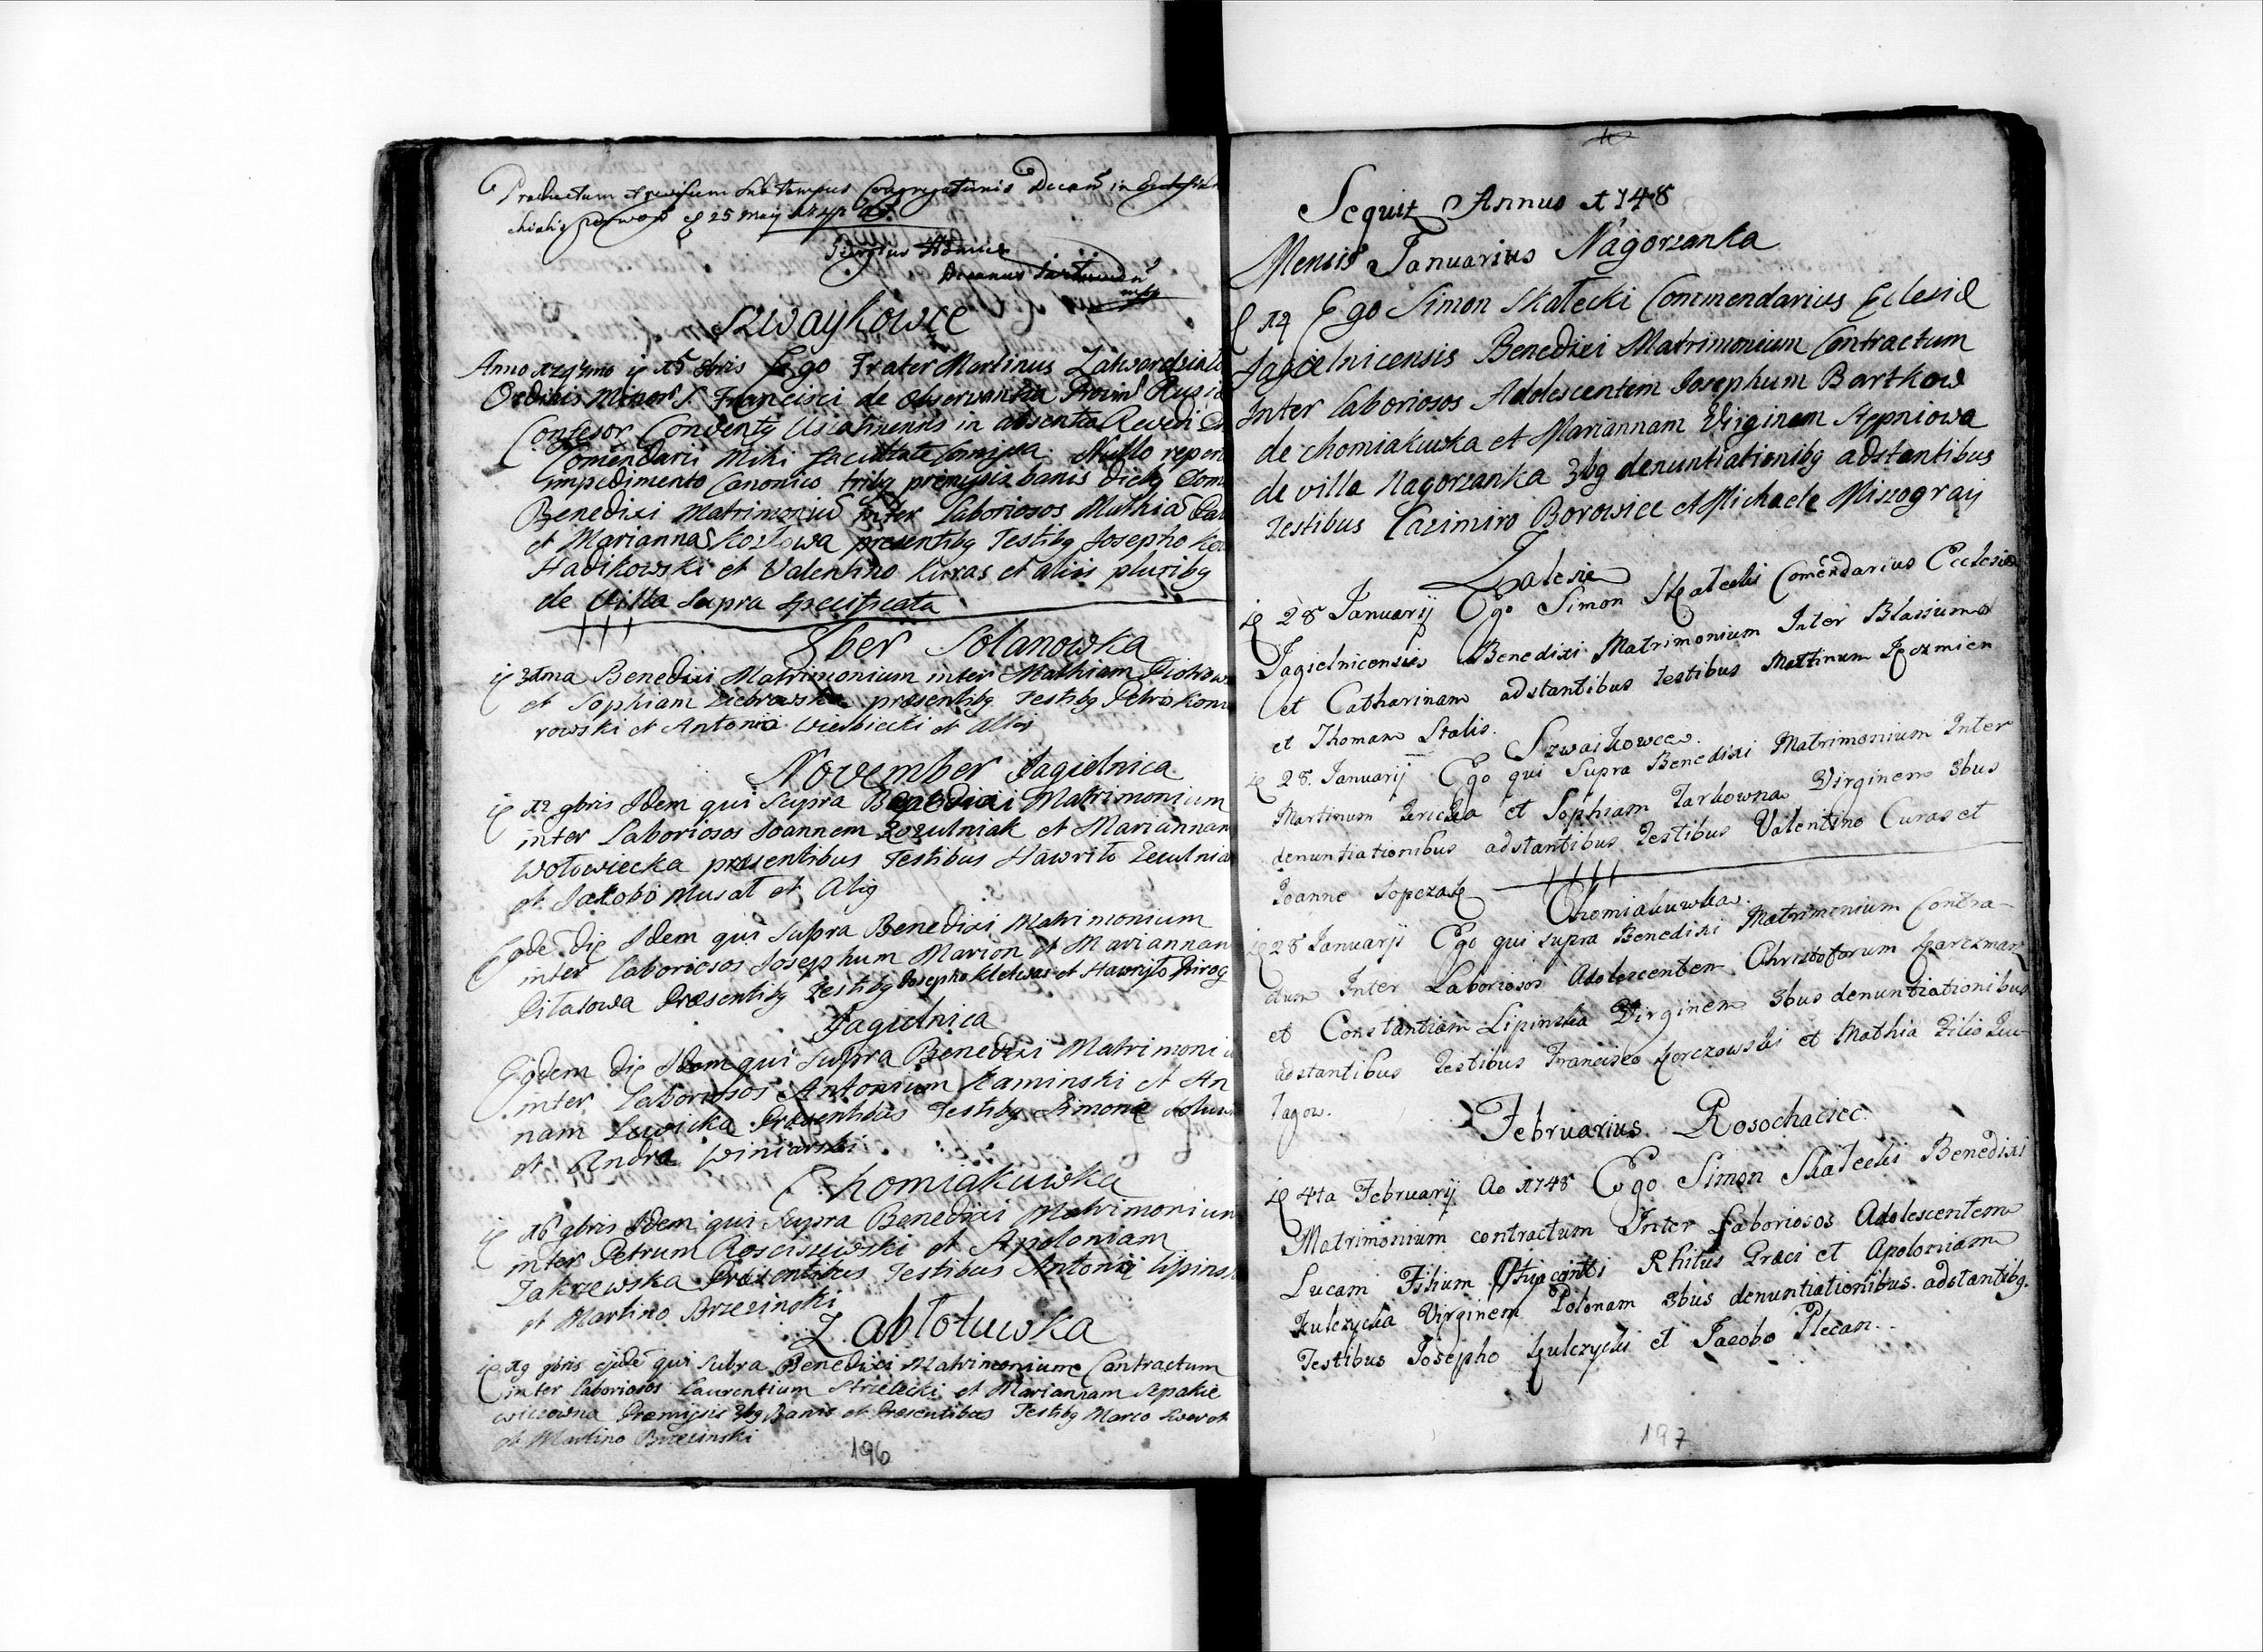 Productum et revisum sub tempus Congregationis Decan in
25 Maij
Decanus
mp
Szwaykowce
Anno 15 8bris Ego Frater Martinus
Ordinis Minor S. Francisci de observantia Provin Rus
Confesor Conventq in absentia Revdi
Comendarii mihi facultate Nullo repert
impedimento Canonico tribq premissis banis diebq Dom
Benedixi Matrimoniu inter Laboriosos Mathia
et Marianna Kozlowa presentibq Testibq Josepho
Hadikowski et Valentino Kurras et aliis pluribq
de Villa supra specificata
8ber Solanowka
ię 31ma Benedixi Matrimonium inter Mathiam
et Sophiam Ziebrowska praesentibq Testibq Petro Kom
rowski et Antonio Wierbiecki et
November Jagielnica
ię 12 9bris Idem qui supra Benedixi Matrimonium
inter Laboriosos Joannem Zozulniak et Mariannam
Wołowiecka praesentibus Testibus Hawriło
et Jakobo Musat et Aliq
Eode Die Idem qui Supra Benedixi Matrimonium
inter Laboriosos Josephum Marion et Mariannam
Pitasowa Praesentibq Testibq Josepho et Hawryło Pirog
Jagielnica
Eodem Die Idem qui supra Benedixi Matrimoniu
inter Laboriosos Antonium Kaminski et An
nam Lewicka Praesentibus Testibq Simone
et Andrea Winiarski
Chomiakuwka
ię 16 9bris Idem qui Supra Benedixi Matrimonium
inter Petrum Rosciszewski et Apoloniam
Zakrzewska Praesentibus Testibus Antonij Lipins
et Martino Brzezinski
Zabłotuwka
ię 19 9bris qui Subra Benedixi Matrimonium Contractum
inter Laboriosos Laurentium Strzelecki et Mariannam Szpakie
wiczowna Premissis 3bq Banis et Praesentibus Testibq Marco
et Martino Brzezinski
196
Sequit Annus 1748
Mensis Januarius Nagorzanka
ię 14 Ego Simon Skałecki Commendarius Eclesię
Jagielnicensis Benedixi Matrimonium Contractum
Inter laboriosos Adolescentem Josephum Bartkow
de Chomiakuwka et Mariannam Virginem Stępniowa
de villa Nagorzanka 3bq denuntiationibq adstantibus
Testibus Cazimiro Borowice et Michaele Miszograij
Zalesie
ię 28 Januarij Ego Simon Skałecki Comendarius Ecclesiae
Jagielnicensis Benedixi Matrimonium Inter Blasium
et Catharinam adstantibus testibus Mattinum Jęczmien
et Thomam Stalis.
Szwaikowce.
ię 28. Januarij Ego qui Supra Benedixi Matrimonium Inter
Martinum Kricka et Sophiam Tarkowna Virginem 3bus
denuntiationibus adstantibus Testibus Valentino Curas et
Joanne Sopczak
Chomiakuwka.
ię 28 Januarij Ego qui supra Benedixi Matrimonium Contra-
ctum Inter Laboriosos Adolescentem Christoforum Karczmarz
et Constantiam Lipinska Virginem 3bus denuntiationibus
adstantibus Testibus Francisco Korczowski et Mathia Filio
Februarius Rosochaciec
ię 4ta Februarij Ao 1748 Ego Simon Skałecki Benedixi
Matrimonium contractum Inter Laboriosos Adolescentem
Lucam Filium Rhitus Graci et Apoloniam
Kulczycka Virginem Polonam 3bus denuntiationibus. adstantibq.
Testibus Josepho Kulczycki et Jacobo Plecan.
197